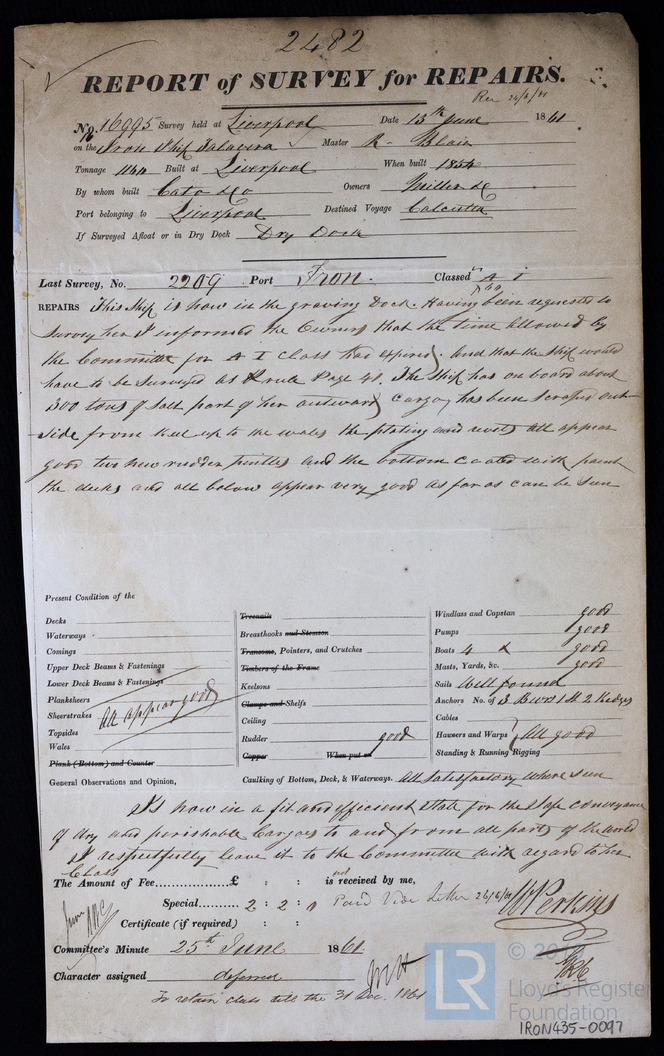 2482
REPORT of SURVEY for REPAIRS.
Rec 26/6/61
No. 16995 Survey held at Liverpool Date 15th June 1861
on the Iron Ship Talavera Master R. Blair
Tonnage 1140 Built at Liverpool When built 1854
By whom built Cato & Co Owners Miller & Co
Port belonging to Liverpool Destined Voyage Calcutta
If Surveyed Afloat or in Dry Dock Dry Dock
Last Survey, No. 2209 Port Iron. Classed A 1
REPAIRS This Ship is now in the graving Dock. Having been requested to
Survey her I informed the Owners that the time allowed by
the Committee for A I Class had expired, and that the Ship would
have to be Surveyed as rule Page 41. The Ship has on board about
300 tons of Salt part of her outward Cargo, has been Scraped out-
side from keel up to the wales the plating and rivets all appear
good two new rudder pintles and the bottom coated with paint
the decks and all below appear very good as far as can be seen
Present Condition of the
Decks
Waterways
Comings
Upper Deck Beams & Fastenings
Lower Deck Beams & Fastenings
Planksheers
Sheerstrakes
Topsides
Wales
All appear good
Plank (Bottom) and Counter
General Observations and Opinion,
Treenails
Breasthooks and Stemson
Transoms, Pointers, and Crutches
Timbers of the Frame
Keelsons
Clamps and Shelfs
Ceiling
Rudder good
Copper When put on
Caulking of Bottom, Deck, & Waterways. All Satisfactory where seen
Windlass and Capstan good
Pumps good
Boats 4 good
Masts, Yards, &c. good
Sails Well found
Anchors No. of 3 Bowers 1 St 2 Kedges
Cables
Hawsers and Warps All good
Standing & Running Rigging
Is now in a fit and efficient state for the safe conveyance
of dry and perishable Cargoes to and from all parts of the world
I respectfully leave it to the Committee with regard to her
Class
The Amount of Fee ............... £ : : is not received by me,
Special ......... 2 : 2 : 0 Paid Vide Letter 26/6/61 W Perkins
Certificate (if required) : :
Committee's Minute 25th June 1861
Character assigned deferred
To retain class till the 31 Dec. 1861
LR
Lloyd's Register
Foundation
IRON435-0097